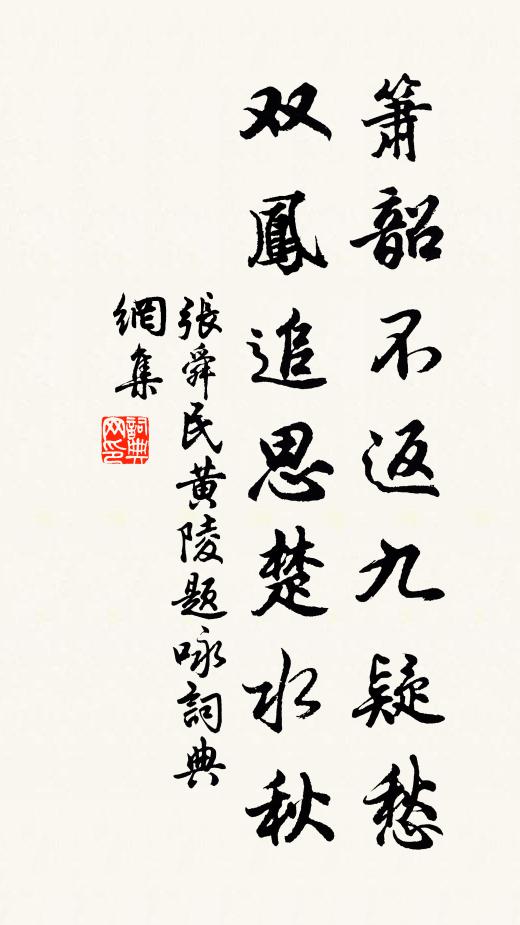 簫韶不返九疑愁
双鳳追思楚水秋
張舜民黃陵題咏詞典
網集
詞典网印